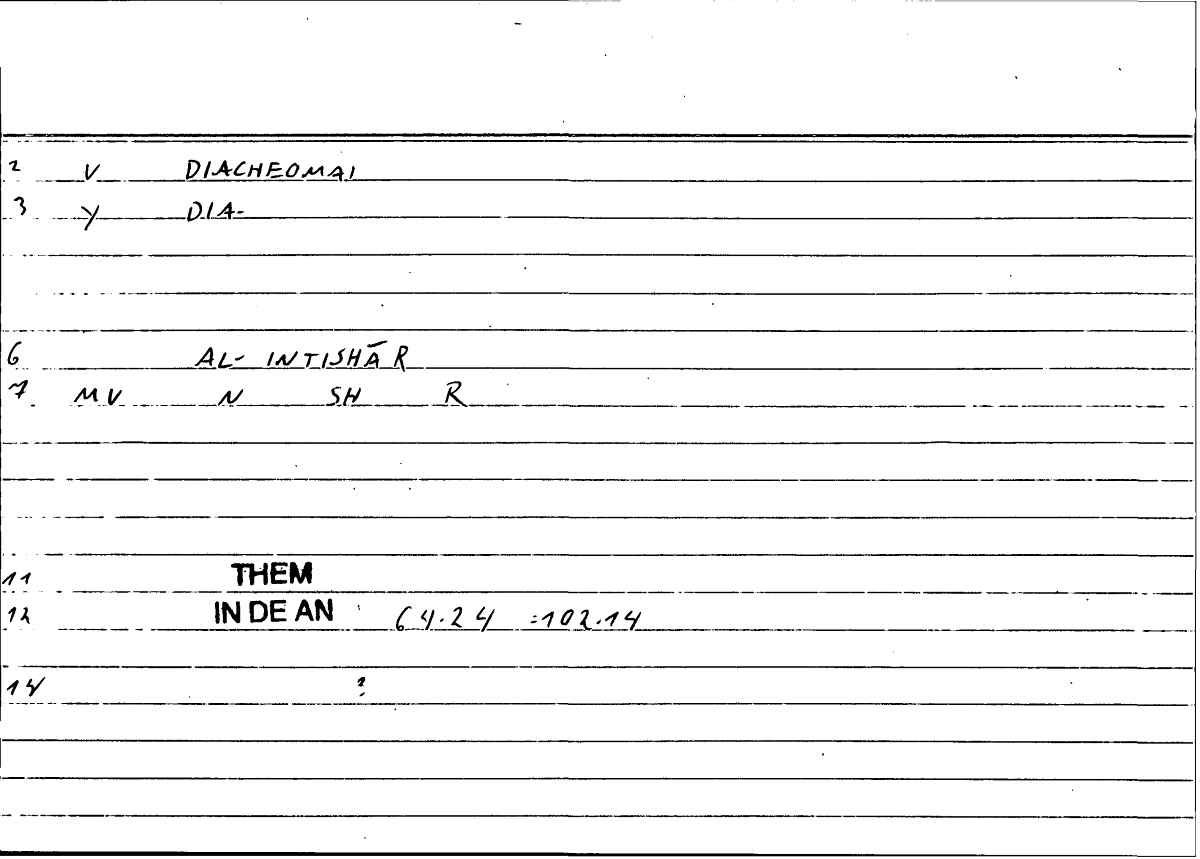 2 V DIACHEOMAI
3 Y DIA-
6 AL- INTISHĀR
7 MV N SH R
11 THEM
12 IN DE AN 64.24 =102.14
14 ?